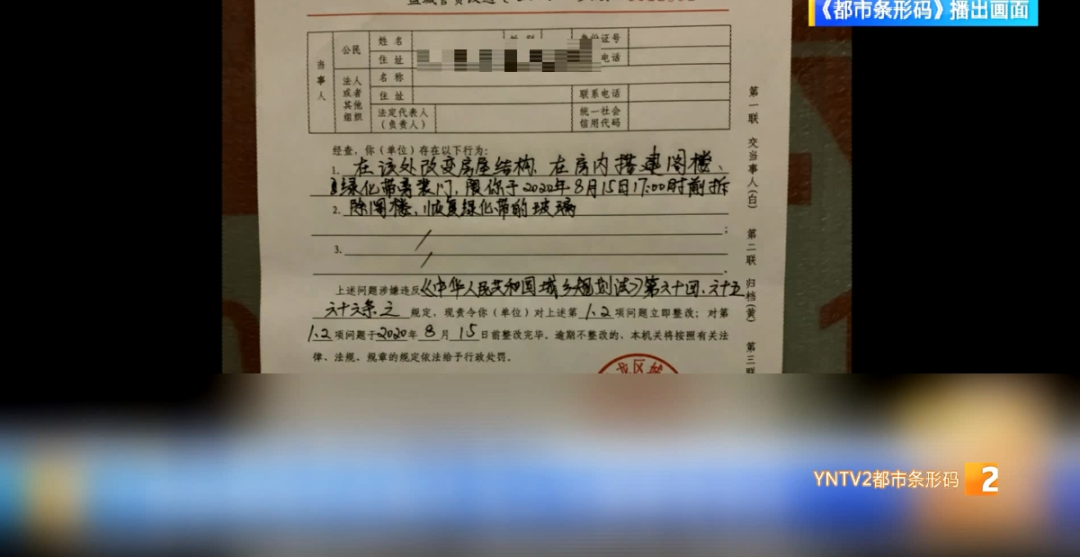 《都市条形码》播出画面
当事人
公民
姓名
住址
电话
法人或者其他组织
名称
住址
联系电话
法定代表人(负责人)
统一社会信用代码
经查,你(单位)存在以下行为:
1. 在该处改变房屋结构、在房内搭建阁楼、
绿化带旁装门,限你于2020年8月15日17:00时前拆
2. 除阁楼、恢复绿化带的玻璃
;
3.
。
上述问题涉嫌违反《中华人民共和国城乡规划法》第六十四、六十五
六十六条之 规定,现责令你(单位)对上述第1、2项问题立即整改;对第
1、2项问题于2020年8月15日前整改完毕。逾期不整改的,本机关将按照有关法
律、法规、规章的规定依法给予行政处罚。
第一联 交当事人(白) 第二联 归档(黄) 第三联
YNTV2都市条形码 2